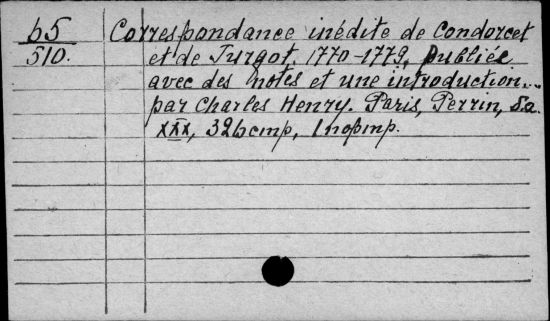 65
510.
Correspondance inédite de Condorcet
et de Turgot. 1770-1779. Publiée
avec des notes et une introduction...
par Charles Henry. Paris, Perrin, S.a.
XXX, 326 стр,